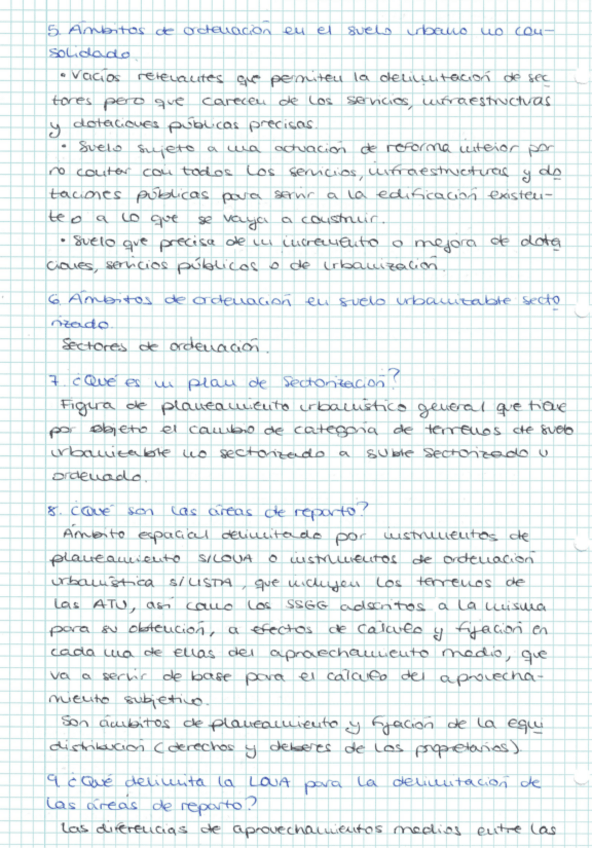 5. Ámbitos de ordenación en el suelo urbano no con-
solidado.
• Vacíos relevantes que permiten la delimitación de sec
tores pero que carecen de los servicios, infraestructuras
y dotaciones públicas precisas.
• Suelo sujeto a una actuación de reforma interior por
no contar con todos los servicios, infraestructuras y do
taciones públicas para servir a la edificación existen-
te o a lo que se vaya a construir.
• Suelo que precisa de un incremento o mejora de dota
ciones, servicios públicos o de urbanización.
6. Ámbitos de ordenación en suelo urbanizable secto
rizado.
Sectores de ordenación.
7. ¿Qué es un plan de sectorización?
Figura de planeamiento urbanístico general que tiene
por objeto el cambio de categoría de terrenos de suelo
urbanizable no sectorizado a suble sectorizado u
ordenado.
8. ¿Qué son las áreas de reparto?
Ámbito espacial delimitado por instrumentos de
planeamiento s/LOUA o instrumentos de ordenación
urbanística s/LISTA, que incluyen los terrenos de
las ATU, así como los SSGG adscritos a la misma
para su obtención, a efectos de cálculo y fijación en
cada una de ellas del aprovechamiento medio, que
va a servir de base para el cálculo del aprovecha-
miento subjetivo.
Son ámbitos de planeamiento y fijación de la equi
distribución (derechos y deberes de los propietarios)
9. ¿Qué delimita la LOUA para la delimitación de
las áreas de reparto?
Las diferencias de aprovechamientos medios entre las